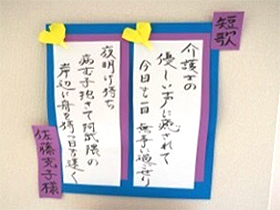 短歌
介護士の
優しい声に癒されて
今日も一日無事に過せり
夜明け待ち
病む子抱きて阿武隈の
岸辺に舟を待つ日も遠く
佐藤克子様